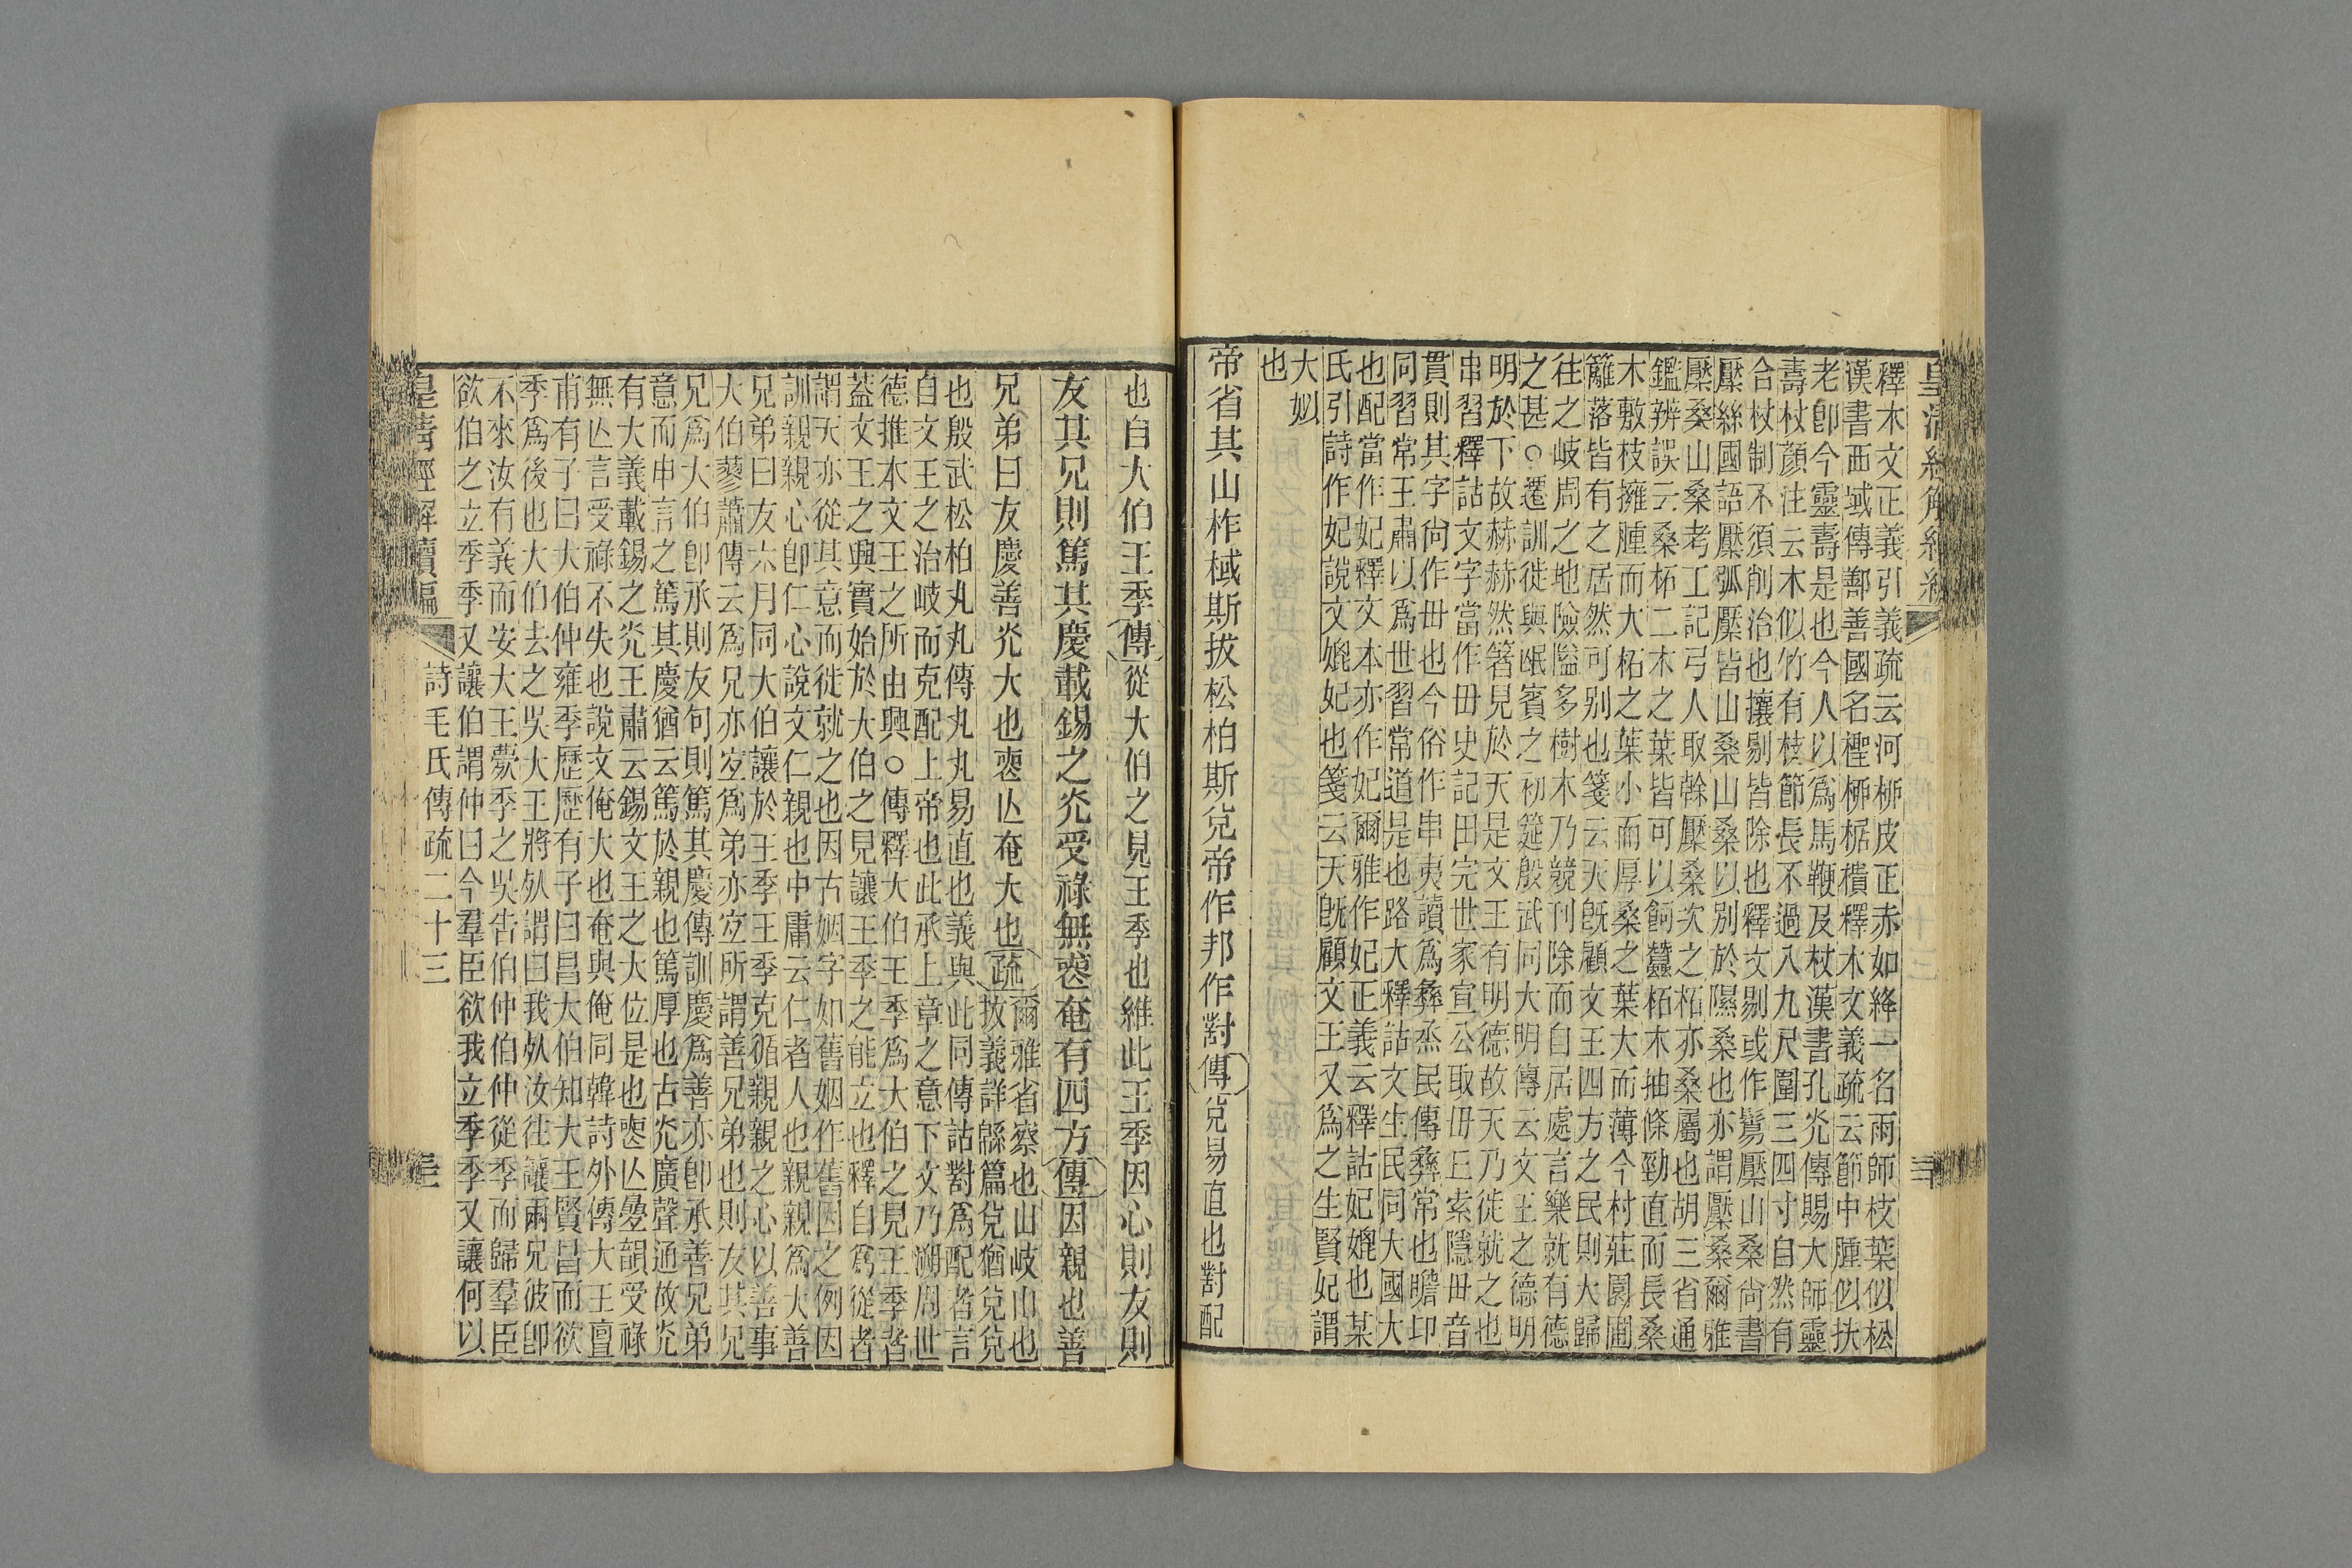 皇清經解續編
釋木文正義引義疏云河柳皮正赤如絳一名雨師枝葉似松
漢書西域傳鄯善國名檉柳椐樻釋木文義疏云節中腫似扶
老卽今靈壽是也今人以爲馬鞭及杖漢書孔光傳賜大師靈
壽杖顏注云木似竹有枝節長不過八九尺圍三四寸自然有
合杖制不須削治也攘剔皆除也釋文剔或作鬄檿山桑尙書
檿絲國語檿弧檿皆山桑山桑以別於隰桑也亦謂檿桑爾雅
檿桑山桑考工記弓人取榦檿桑次之柘亦桑屬也胡三省通
鑑辨誤云桑柘二木之葉皆可以飼蠶柘木抽條勁直而長桑
木敷枝擁腫而大柘之葉小而厚桑之葉大而薄今村莊園圃
籬落皆有之居然可別也箋云天旣顧文王四方之民則大歸
往之岐周之地險隘多樹木乃競刊除而自居處言樂就有德
之甚○遷訓徙與岷賓之初筵殷武同大明傳云文王之德明
明於下故赫赫然箸見於天是文王有明德故天乃徙就之也
串習釋詁文字當作毌史記田完世家宣公取毌丘索隱毌音
貫則其字尙作毌也今俗作串夷讀爲彝烝民傳彝常也瞻卬
同習常王肅以爲世習常道是也路大釋詁文生民同大國大
也配當作妃釋文本亦作妃爾雅作妃正義云釋詁妃媲也某
氏引詩作妃說文媲妃也箋云天旣顧文王又爲之生賢妃謂
大姒
也
帝省其山柞棫斯拔松柏斯兌帝作邦作對傳兌易直也對配
也自大伯王季傳從大伯之見王季也維此王季因心則友則
友其兄則篤其慶載錫之光受祿無喪奄有四方傳因親也善
兄弟曰友慶善光大也喪亾奄大也疏爾雅省察也山岐山也
拔義詳緜篇兌猶兌兌
也殷武松柏丸丸傳丸丸易直也義與此同傳詁對爲配者言
自文王之治岐而克配上帝也此承上章之意下文乃溯周世
德推本文王之所由興○傳釋大伯王季爲大伯之見王季者
蓋文王之興實始於大伯之見讓王季之能立也釋自爲從者
謂天亦從其意而徙就之也因古姻字如舊姻作舊因之例因
訓親親心卽仁心說文仁親也中庸云仁者人也親親爲大善
兄弟曰友六月同大伯讓於王季王季克循親親之心以善事
大伯蓼蕭傳云爲兄亦宐爲弟亦宐所謂善兄弟也則友其兄
兄爲大伯卽承則友句則篤其慶傳訓慶爲善亦卽承善兄弟
意而申言之篤其慶猶云篤於親也篤厚也古光廣聲通故光
有大義載錫之光王肅云錫文王之大位是也喪亾曡韻受祿
無亾言受祿不失也說文俺大也奄與俺同韓詩外傳大王亶
甫有子曰大伯仲雍季歷歷有子曰昌大伯知大王賢昌而欲
季爲後也大伯去之吳大王將死謂曰我死汝往讓兩兄彼卽
不來汝有義而安大王薨季之吳告伯仲伯仲從季而歸羣臣
欲伯之立季季又讓伯謂仲曰今羣臣欲我立季季又讓何以
皇清經解續編 詩毛氏傳疏二十三